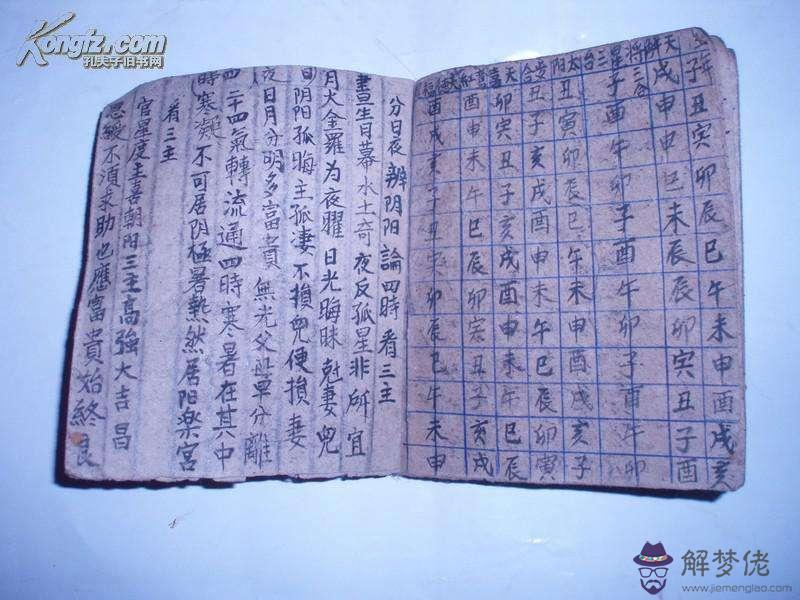 子丑寅卯辰巳午未申酉戌亥
天解戌申申巳未辰辰卯寅丑子酉
将星三合子酉午卯子酉午卯子酉午卯
太阳丑寅卯辰巳午未申酉戌亥子
丑子亥戌酉申未午巳辰卯寅
卯寅丑子亥戌酉申未午巳辰
天喜酉申未午巳辰卯寅丑子亥戌
酉戌亥子丑寅卯辰巳午未申
分日夜辨阴阳論四時看三主
晝生月幕水土奇夜反孤星非所宜
月火金羅为夜曜日光晦昧尅妻兒
日阴阳孤晦主孤淒不損兒便損妻
夜日月分明多富貴無光父母早分離
四二十四氣轉流通四時寒暑在其中
時寒凝不可居阴極暑热然居阳樂宫
看三主
官星度主喜朝阳三主高強大吉昌
恩變不須求助也應富貴始終良
Kongfz.com
孔夫子旧书网
解梦佬
www.jiemenglao.com